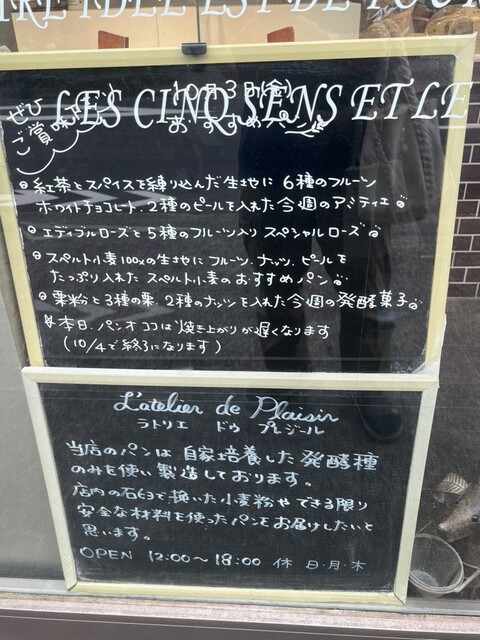 ぜひ
ご賞味下さい
10月3日(金)
おすすめパン
LES CINQ SENS ET LE
⦿紅茶とスパイスを練り込んだ生地に 6種のフルーツ
ホワイトチョコレート、2種のピールを入れた今週のアミティエ
⦿エディブルローズと5種のフルーツ入り スペシャルローズ
⦿スペルト小麦100%の生地にフルーツ、ナッツ、ピールを
たっぷり入れた スペルト小麦のおすすめパン
⦿栗粉と3種の栗、2種のナッツを入れた今週の発酵菓子
※本日、パンオココは焼き上がりが遅くなります
(10/4で終了になります)
L'atelier de Plaisir
ラトリエ ドゥ プレジール
当店のパンは 自家培養した発酵種
のみを使い製造しております。
店内の石臼で挽いた小麦粉やできる限り
安全な材料を使ったパンをお届けしたいと
思います。
OPEN 12:00〜18:00 休 日・月・木